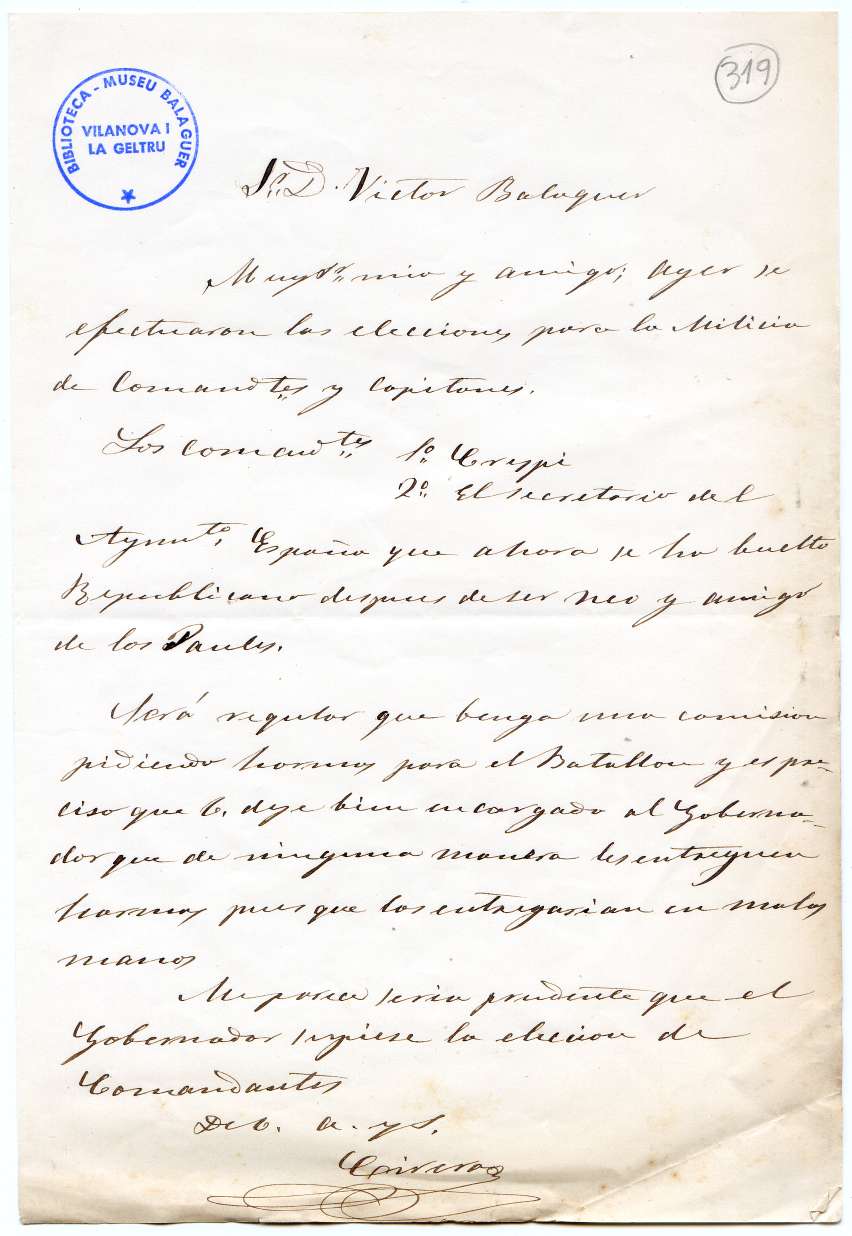 319
BIBLIOTECA - MUSEU BALAGUER
VILANOVA I
LA GELTRU
Sr. D. Victor Balaguer
Muy Sr. mio y amigo; ayer se
efectuaron las elecciones para la Milicia
de Comandtes y Capitanes.
Los comandtes 1o. Crespi
2o. El secretario del
Ayunto. España que ahora se ha buelto
Republicano despues de ser neo y amigo
de los Paules.
Será regular que benga una comision
pidiendo harmas para el Batallon y es pre-
ciso que V. deje bien encargado al Goberna-
dor que de ninguna manera les entreguen
harmas pues que las entregarian en malas
manos
Me parece seria prudente que el
Gobernador supiese la eleccion de
Comandantes
De V. a. y S.